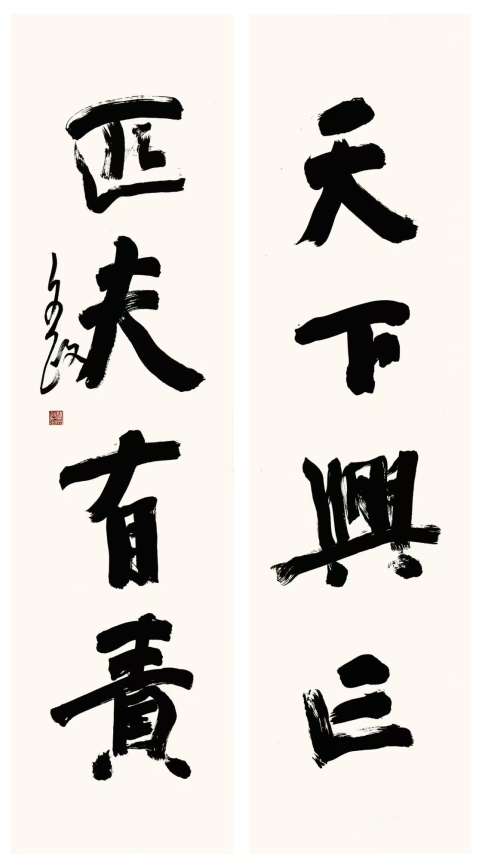 天下興亡
匹夫有責